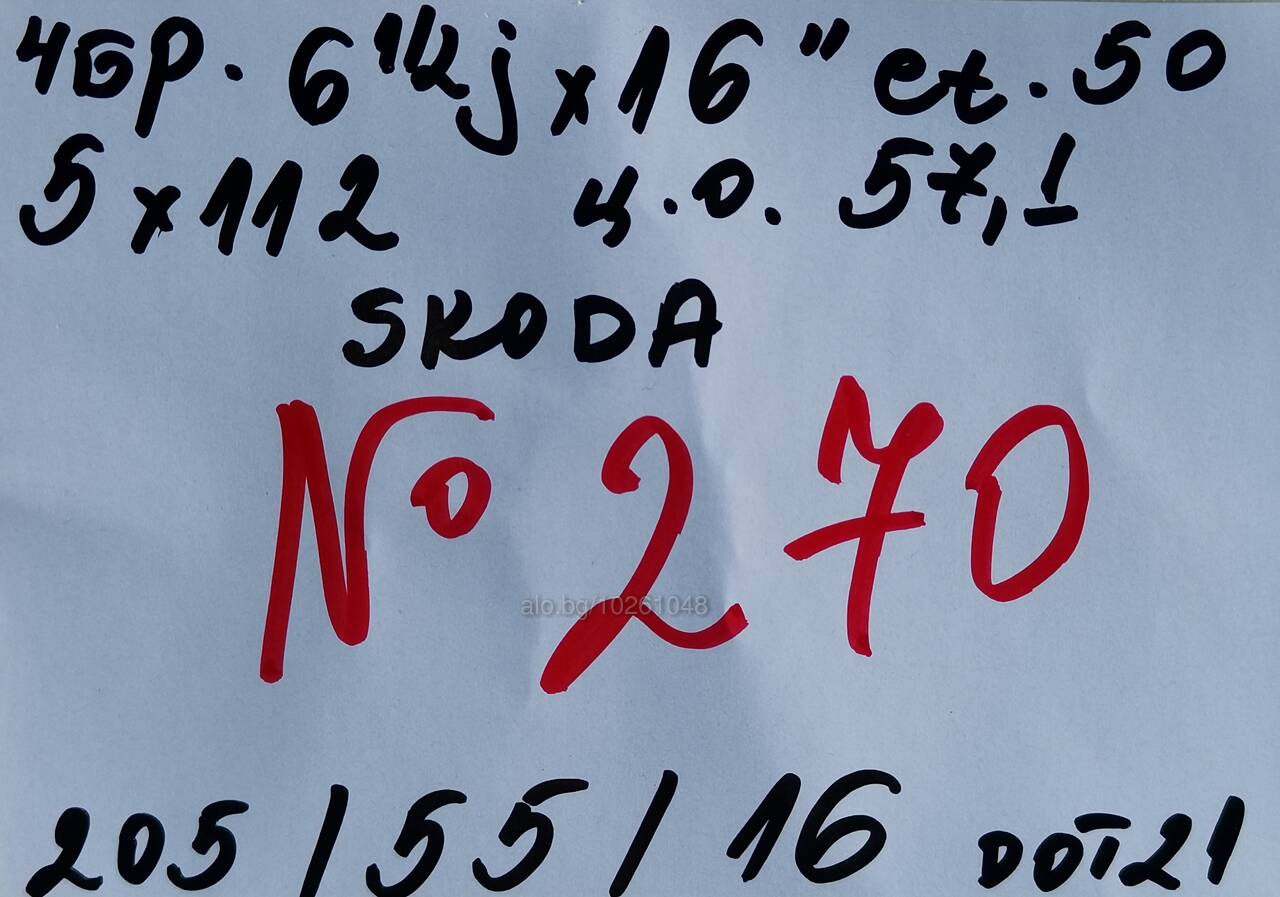 4бр. 6 1/2j x 16" et. 50
5 x 112 ц.о. 57,1
SKODA
№ 270
alo.bg/10261048
205 / 55 / 16 DOT21